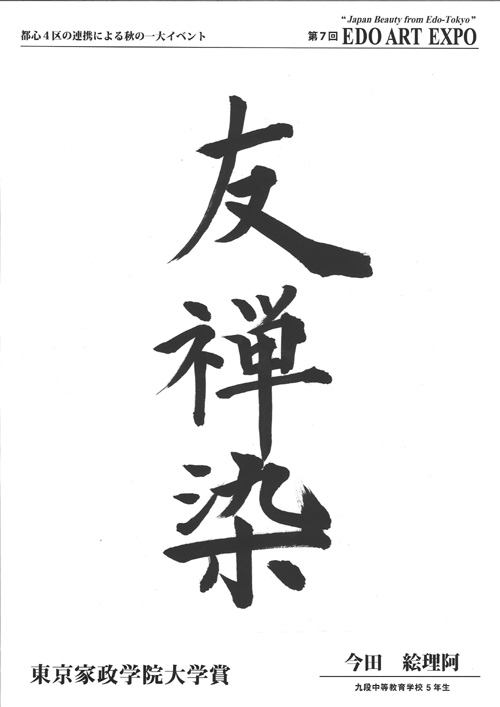 "Japan Beauty from Edo-Tokyo"
都心4区の連携による秋の一大イベント
第7回 EDO ART EXPO
友禅染
東京家政学院大学賞
今田 絵理阿
九段中等教育学校 5年生